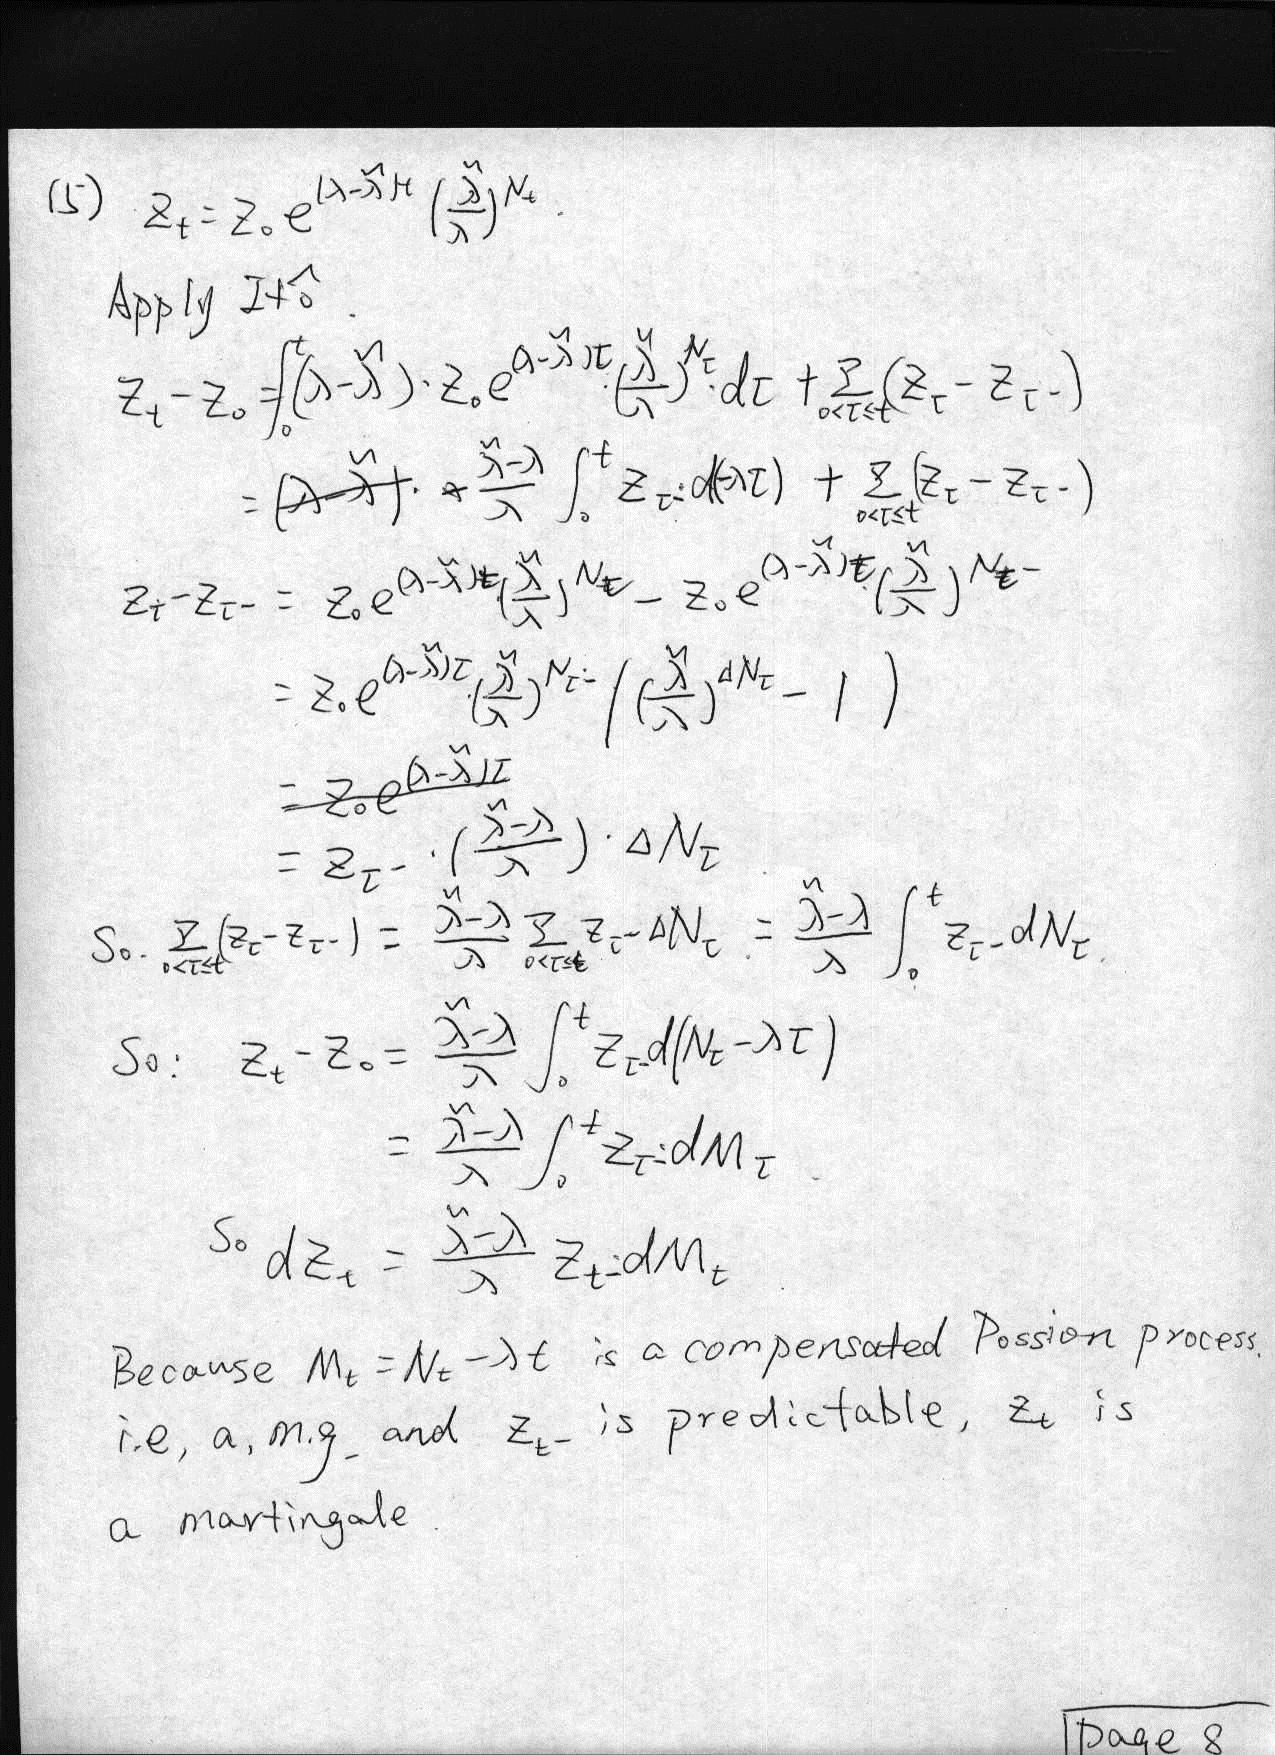 (5) Z_t = Z_0 e^{(λ-λ̃)t} (λ̃/λ)^{N_t}.
Apply Itô.
Z_t - Z_0 = ∫_0^t (λ-λ̃)·Z_0 e^{(λ-λ̃)τ}·(λ̃/λ)^{N_τ}·dτ + Σ_{0<τ≤t} (Z_τ - Z_{τ-})
= (λ̃-λ)/λ ∫_0^t Z_{τ-} d(-λτ) + Σ_{0<τ≤t} (Z_τ - Z_{τ-})
Z_τ - Z_{τ-} = Z_0 e^{(λ-λ̃)τ} (λ̃/λ)^{N_τ} - Z_0 e^{(λ-λ̃)τ} (λ̃/λ)^{N_{τ-}}
= Z_0 e^{(λ-λ̃)τ}·(λ̃/λ)^{N_{τ-}} ((λ̃/λ)^{ΔN_τ} - 1)
= Z_0 e^{(λ-λ̃)τ}
= Z_{τ-}·((λ̃-λ)/λ)·ΔN_τ
So. Σ_{0<τ≤t} (Z_τ - Z_{τ-}) = (λ̃-λ)/λ Σ_{0<τ≤t} Z_{τ-} ΔN_τ = (λ̃-λ)/λ ∫_0^t Z_{τ-} dN_τ.
So: Z_t - Z_0 = (λ̃-λ)/λ ∫_0^t Z_{τ-} d(N_τ - λτ)
= (λ̃-λ)/λ ∫_0^t Z_{τ-} dM_τ
So dZ_t = (λ̃-λ)/λ Z_{t-} dM_t
Because M_t = N_t - λt is a compensated Possion process.
i.e, a, m.g. and Z_{t-} is predictable, Z_t is
a martingale.
page 8